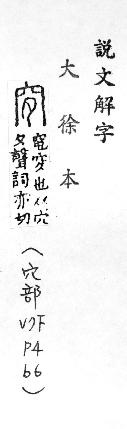 說文解字
大徐本
窀穸也从穴
夕聲詞亦切
(穴部
V7下
P4
b6)